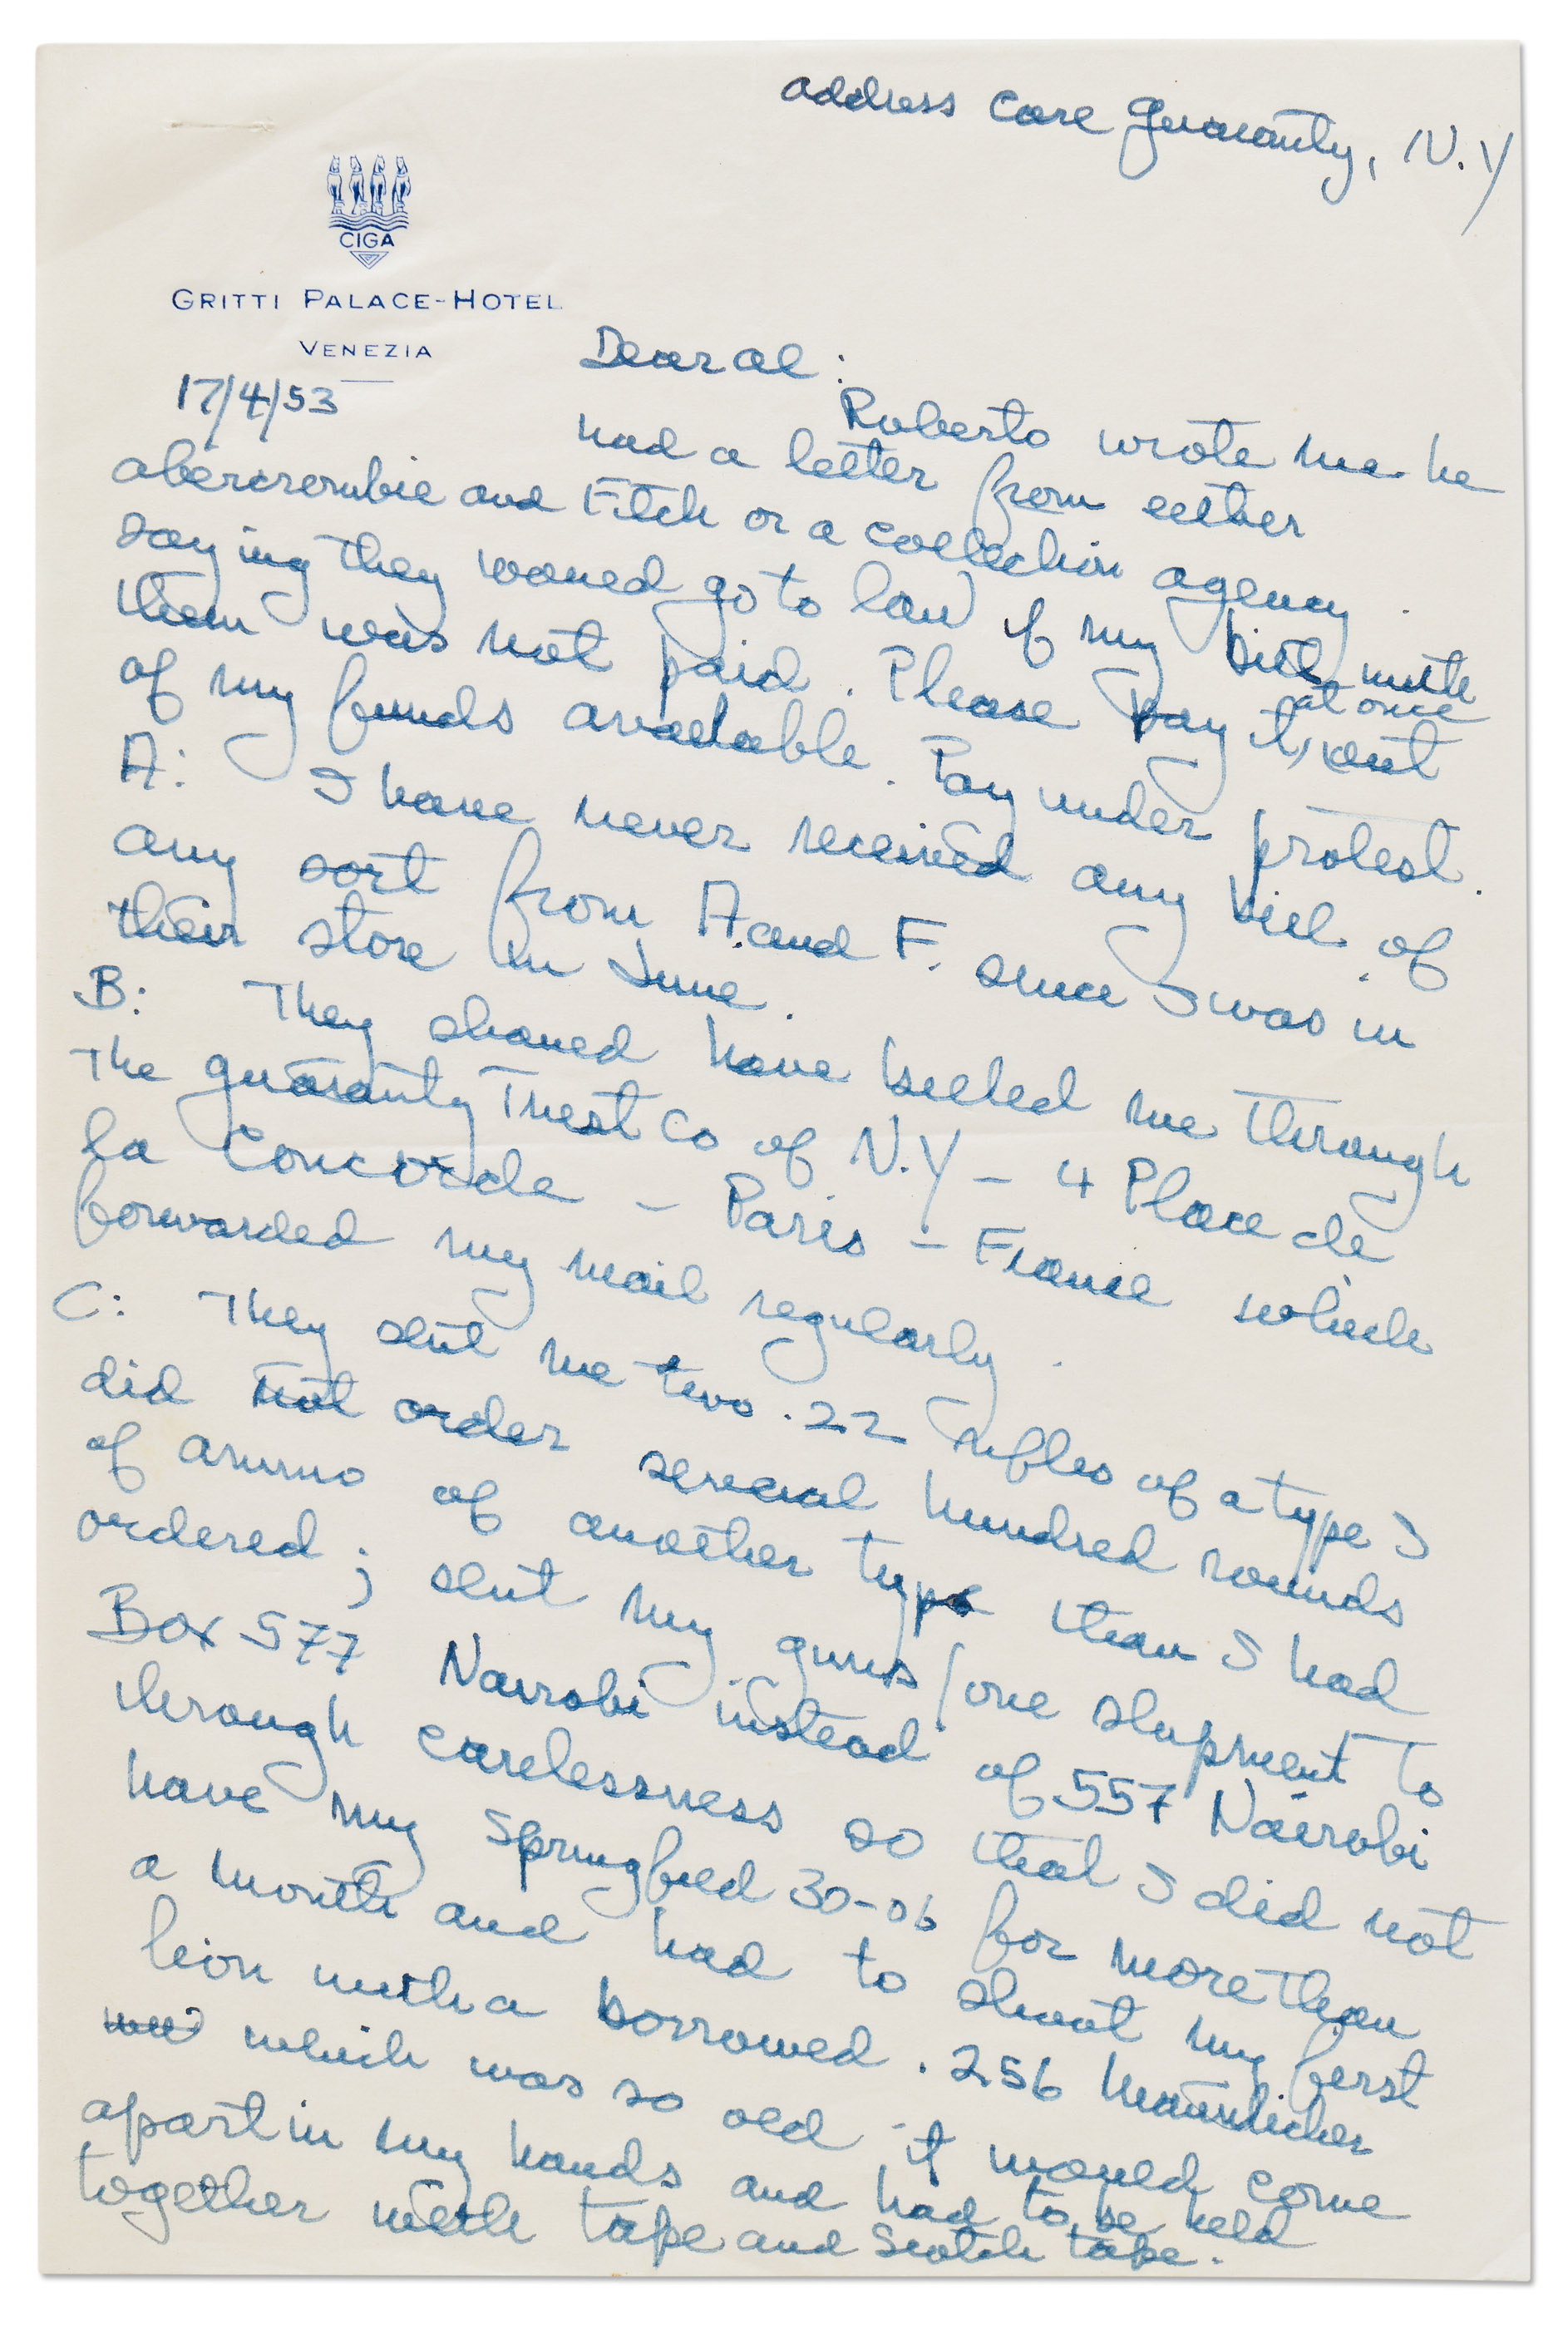 address care Guaranty, N.Y
CIGA
GRITTI PALACE-HOTEL
VENEZIA
17/4/53
Dear Al:
Roberto wrote me he
had a letter from either
Abercrombie and Fitch or a collection agency
saying they would go to law if my bill with
them was not paid. Please pay it, at once out
of my funds available. Pay under protest.
A: I have never received any bill of
any sort from A. and F. since I was in
their store in June.
B: They should have billed me through
The Guaranty Trust Co of N.Y - 4 Place de
la Concorde - Paris - France which
forwarded my mail regularly.
C: They sent me two .22 rifles of a type I
did not order several hundred rounds
of ammo of another type than I had
ordered; sent my guns (one shipment to
Box 577 Nairobi instead of 557 Nairobi
through carelessness so that I did not
have my Springfield 30-06 for more than
a month and had to shoot my first
lion with a borrowed .256 Mannlicher
which was so old it would come
apart in my hands and had to be held
together with tape and Scotch tape.